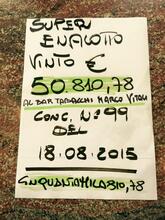 SUPER
ENALOTTO
VINTO €
50.810,78
AL BAR TABACCHI MARCO VITALI
CONC. N: 99
DEL
18.08.2015
CINQUANTAMILA810,78